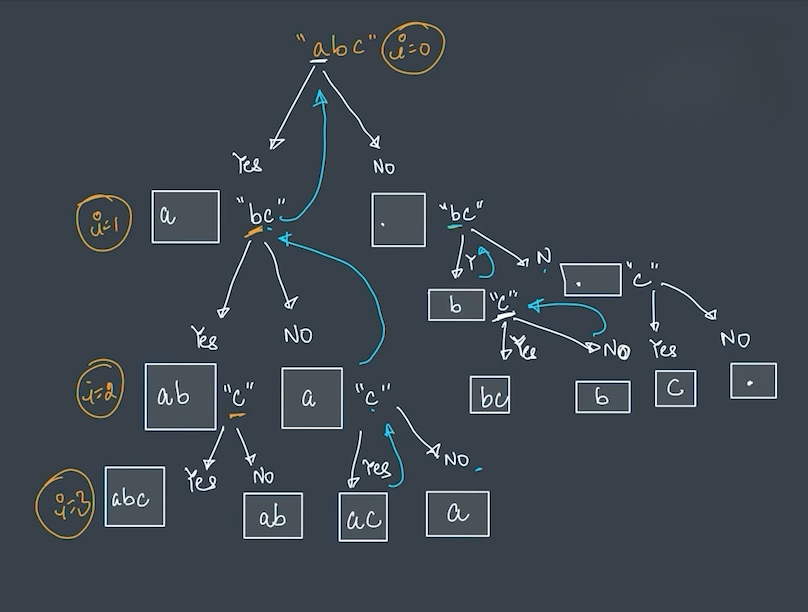 "abc" i=0
Yes NO
i=1 a "bc" . "bc"
Y N
. "c"
b "c"
Yes NO Yes NO Yes NO
i=2 ab "c" a "c" bc b c .
Yes NO Yes NO
i=3 abc ab ac a